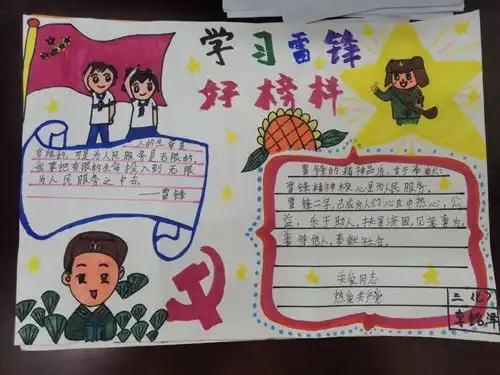 学习雷锋
好榜样
人的生命是
有限的,可是为人民服务是无限的,
我要把有限的生命,投入到无限
为人民服务之中去。
——雷锋
雷锋的精神品质,甘于奉献:
雷锋精神核心是为人民服务,
雷锋二字,已成为人们心目中热心,公
益,乐于助人,扶贫济困,见义勇为,
善待他人,奉献社会。
关爱同志
热爱共产党
三(
李铭泽